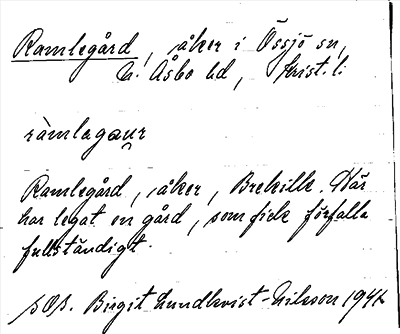 Ramlegård, åker i Össjö sn,
N. Åsbo hd, Krist. l:
ràmlegaur
Ramlegård, åker, Brekille. Här
har legat en gård, som fick förfalla
fullständigt.
Birgit Lundkvist-Nilsson 1947